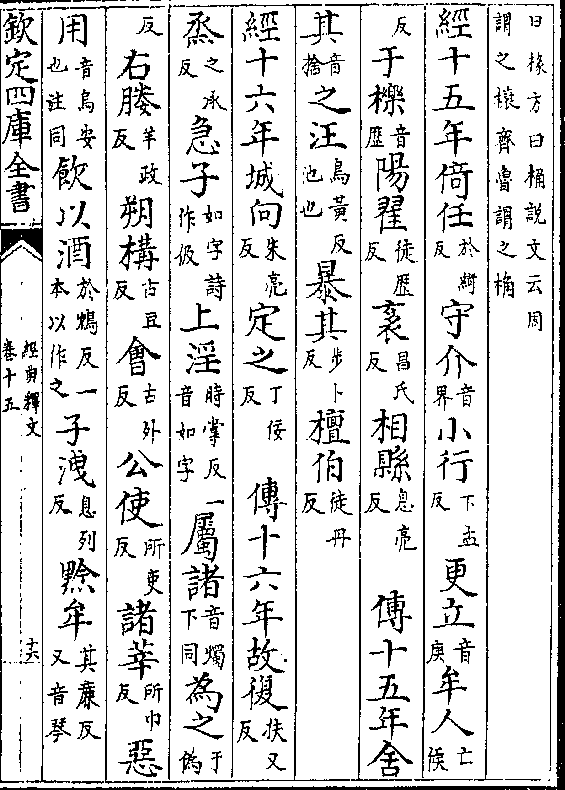 曰椽方曰桷說文云周
謂之榱齊魯謂之桷
經十五年倚任於綺反守介音界小行下孟反更立音庚牟人亡侯
反于櫟音歷陽翟徒歷反袲昌氏反相縣息亮反 傳十五年舍
其音捨之汪烏黃反池也暴其步卜反檀伯徒丹反
經十六年城向朱亮反定之丁佞反 傳十六年故復扶又反
烝之承反急子如字詩作伋上淫時掌反一音如字屬諸音燭下同為之于偽
反右媵羊政反朔構古豆反會古外反公使所吏反諸莘所巾反惡
用音烏安也註同飲以酒於鴆反一本以作之子洩息列反黔牟其廉反又音琴
欽定四庫全書
經典釋文
卷十五
十六